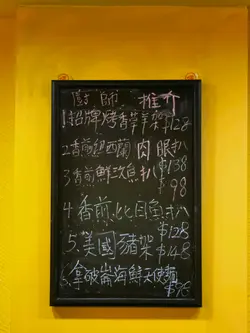 廚師 推介
1招牌烤香草羊架$128
2香煎紐西蘭肉眼扒
$138
3香煎鮮三文魚扒
$98
4香煎比目魚扒
$128
5.美國豬架$148
6.拿破崙海鮮天使麵
$98